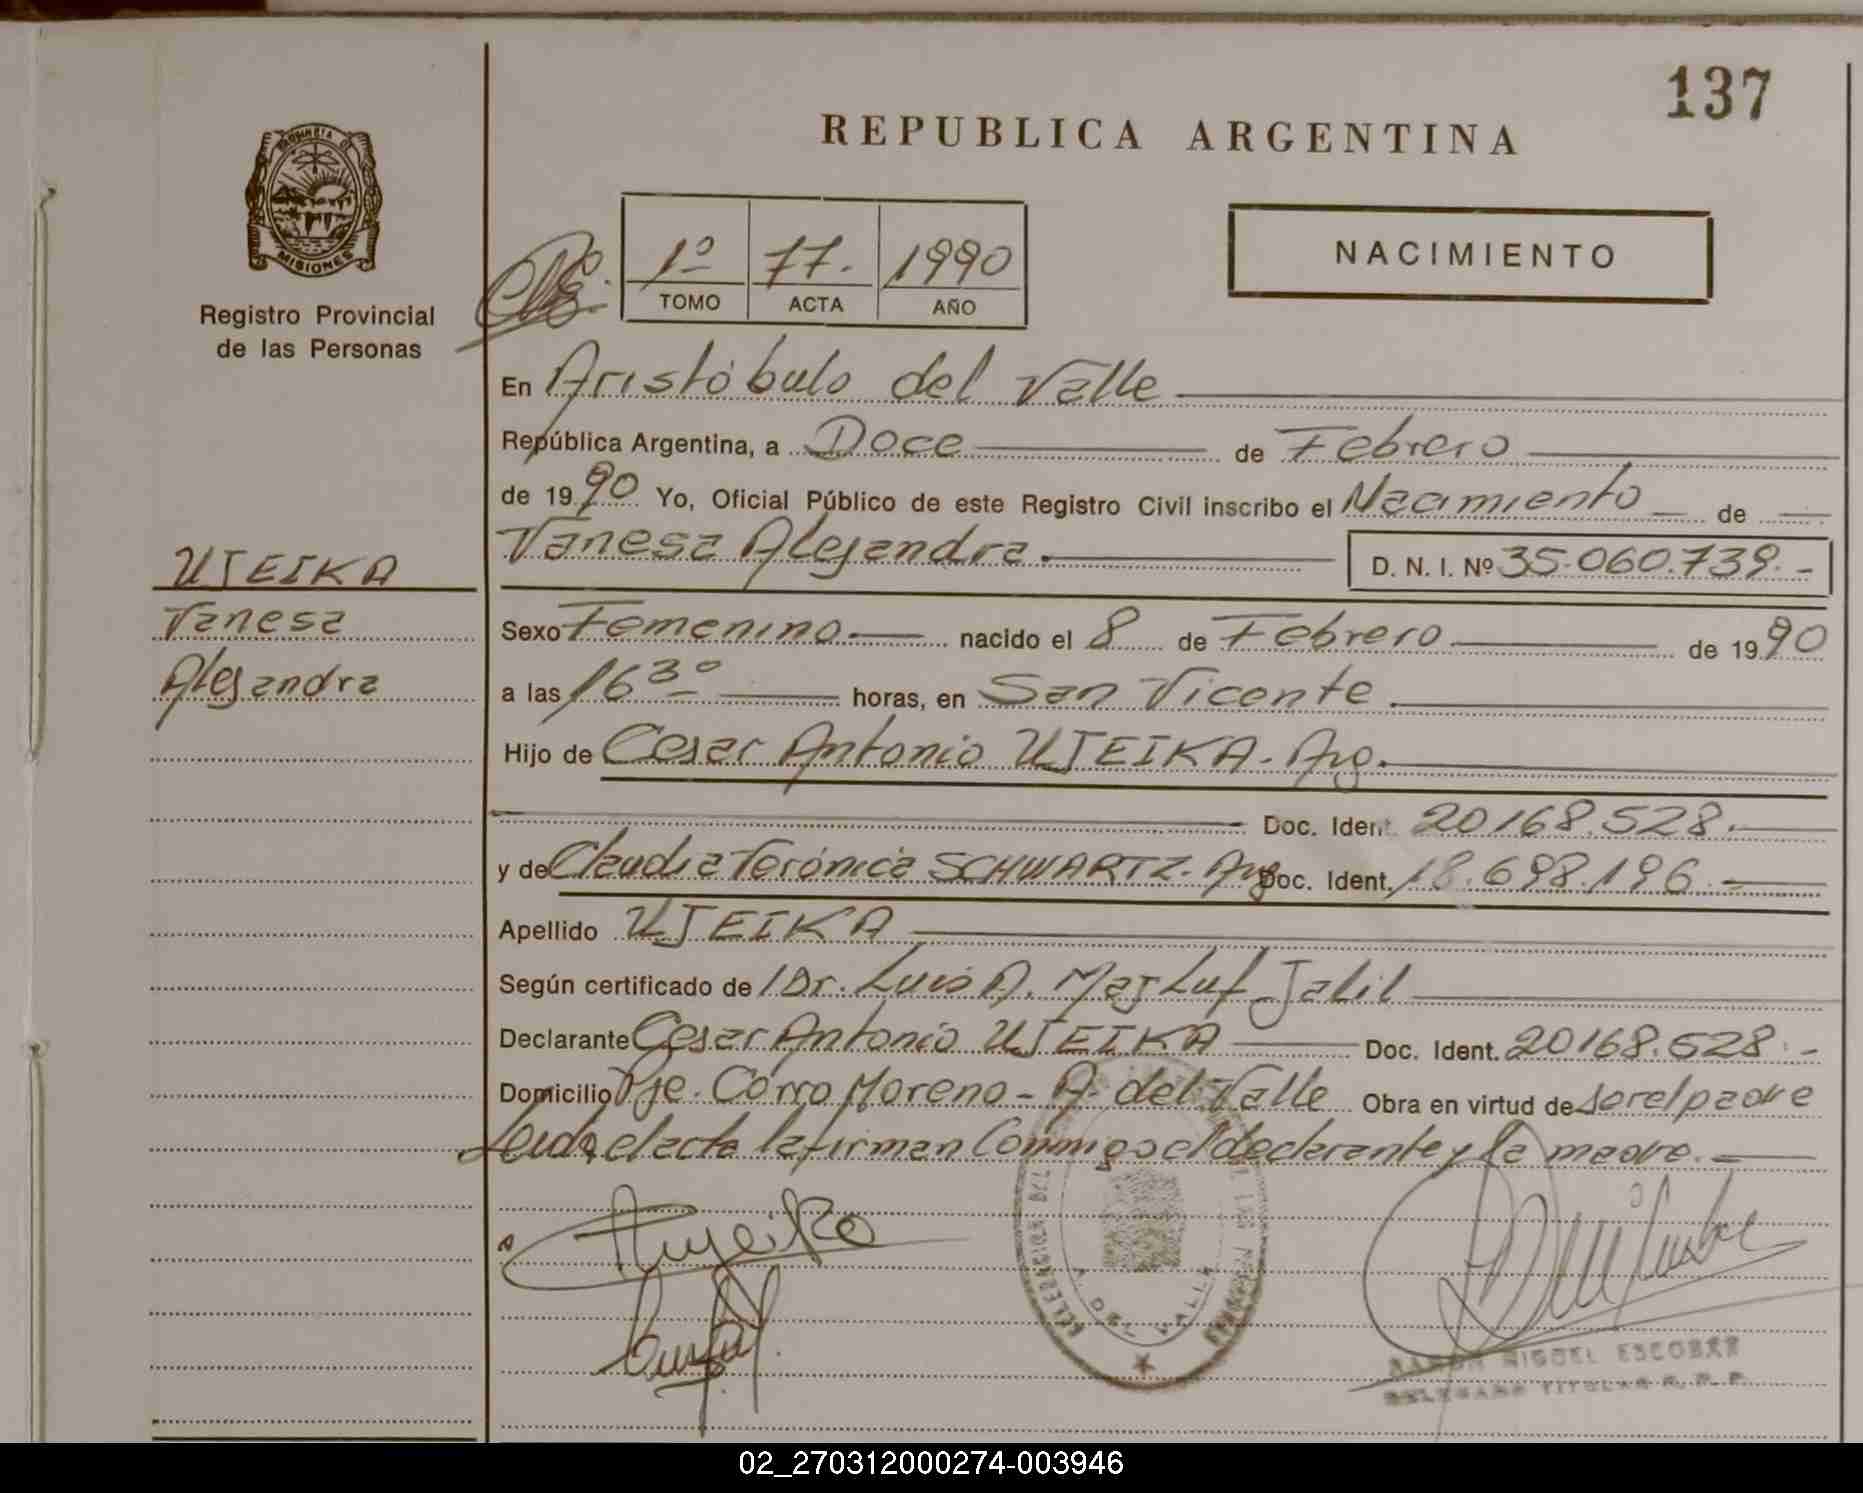 137
REPUBLICA ARGENTINA
PROVINCIA DE
MISIONES
Registro Provincial
de las Personas
1º 77.- 1990
TOMO ACTA AÑO
NACIMIENTO
En Aristóbulo del Valle
República Argentina, a Doce de Febrero
de 1990 Yo, Oficial Público de este Registro Civil inscribo el Nacimiento de
Vanesa Alejandra.
D. N. I. Nº 35.060.739.-
UJEIKA
Vanesa
Alejandra
Sexo Femenino nacido el 8 de Febrero de 1990
a las 16 30 horas, en San Vicente
Hijo de Cesar Antonio UJEIKA - Arg.
Doc. Ident. 20168.528.
y de Claudia Verónica SCHWARTZ - Arg Doc. Ident. 18.698.196.-
Apellido UJEIKA
Según certificado de l Dr. Luis A. Majluf Jalil
Declarante Cesar Antonio UJEIKA Doc. Ident. 20168.528.-
Domicilio Pje. Corro Moreno - A. del Valle Obra en virtud de ser el padre
Leida el acta la firman Conmigo el declarante y la madre.-
DELEGACION DEL
A. DEL VALLE
RAMON MIGUEL ESCOBAR
DELEGADO TITULAR R. P. P.
02_270312000274-003946